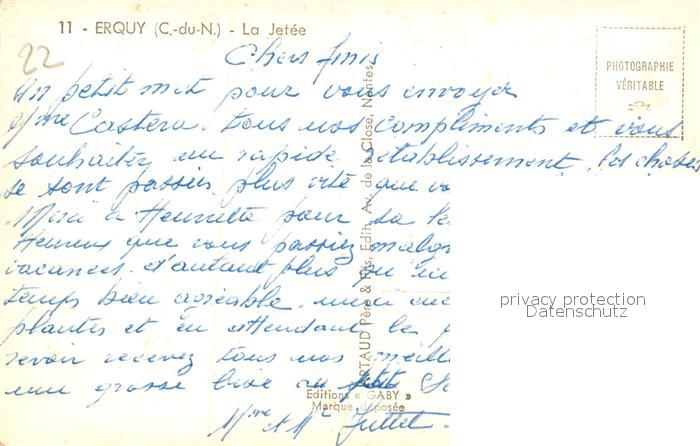 11 - ERQUY (C.-du-N.) - La Jetée
22
Chers amis
PHOTOGRAPHIE
VÉRITABLE
Un petit mot pour vous envoyer
Mme Castera. tous nos compliments et vous
souhaiter un rapide rétablissement. Les choses
se sont passées plus vite que vo
Merci à Henriette pour sa le
Heureux que vous passiez malgr
vacances. d'autant plus qu'ic
temps bien agréable.
plantes et en attendant le p
revoir recevez tous nos meille
une grosse bise au petit
Mme & Mr Juttet
ARTAUD Père & Fils, Edit., Av. de la Close, Nantes
Editions « GABY »
Marque déposée
privacy protection
Datenschutz